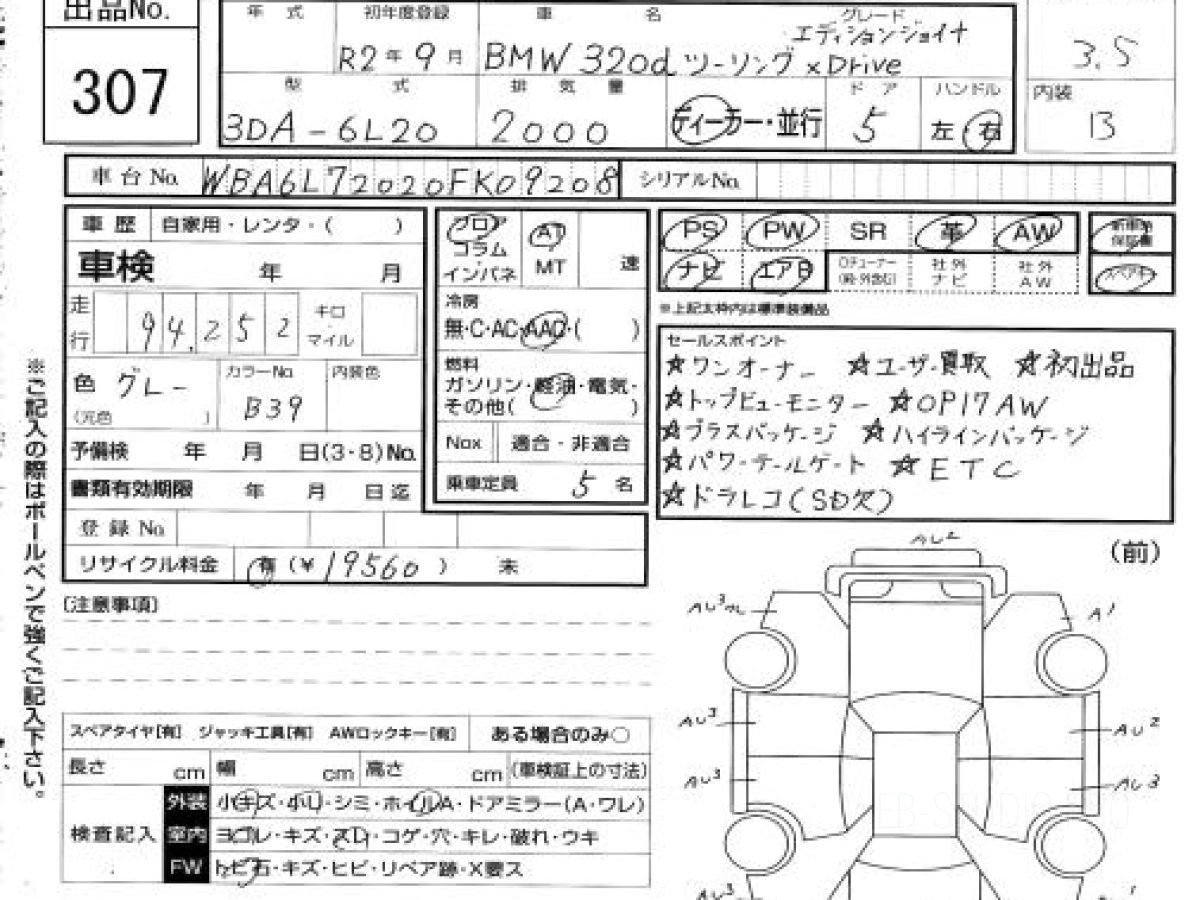 出品No.
307
年 式 初年度登録 車 名 グレード
R2年9月 BMW 320d ツーリング xDrive エディションジョイナ
型 式 排 気 量 ド ア ハンドル
3DA-6L20 2000 ディーラー・並行 5 左 右
3.5
内装
13
車台No. WBA6L72020FK09208 シリアルNo.
車歴 自家用・レンタ・( )
車検 年 月
走行 94,252 キロ・マイル
色 グレー
(元色 )
カラーNo. B39
内装色
予備検 年 月 日(3・8)No.
書類有効期限 年 月 日迄
登録No
リサイクル料金 有(¥19560) 未
フロア
コラム
インパネ
AT
MT 速
冷房
無・C・AC・AAC・( )
燃料
ガソリン・軽油・電気・
その他( )
Nox 適合・非適合
乗車定員 5名
PS PW SR 革 AW 新車時保証書
ナビ エアB 社外ナビ 社外AW スペアキー
※上記太枠内は標準装備品
セールスポイント
☆ワンオーナー ☆ユーザー買取 ☆初出品
☆トップビューモニター ☆OP17AW
☆プラスパッケージ ☆ハイラインパッケージ
☆パワーテールゲート ☆ETC
☆ドラレコ(SD欠)
※ご記入の際はボールペンで強くご記入下さい。
〔注意事項〕
スペアタイヤ[有] ジャッキ工具[有] AWロックキー[有] ある場合のみ○
長さ cm 幅 cm 高さ cm (車検証上の寸法)
検査記入
外装 小キズ・小凹・シミ・ホイルA・ドアミラー(A・ワレ)
室内 ヨゴレ・キズ・スレ・コゲ・穴・キレ・破れ・ウキ
FW トビ石・キズ・ヒビ・リペア跡・X要ス
(前)
AU2
AU3
A1
AU3
AU2
AU3
AU3
AU3